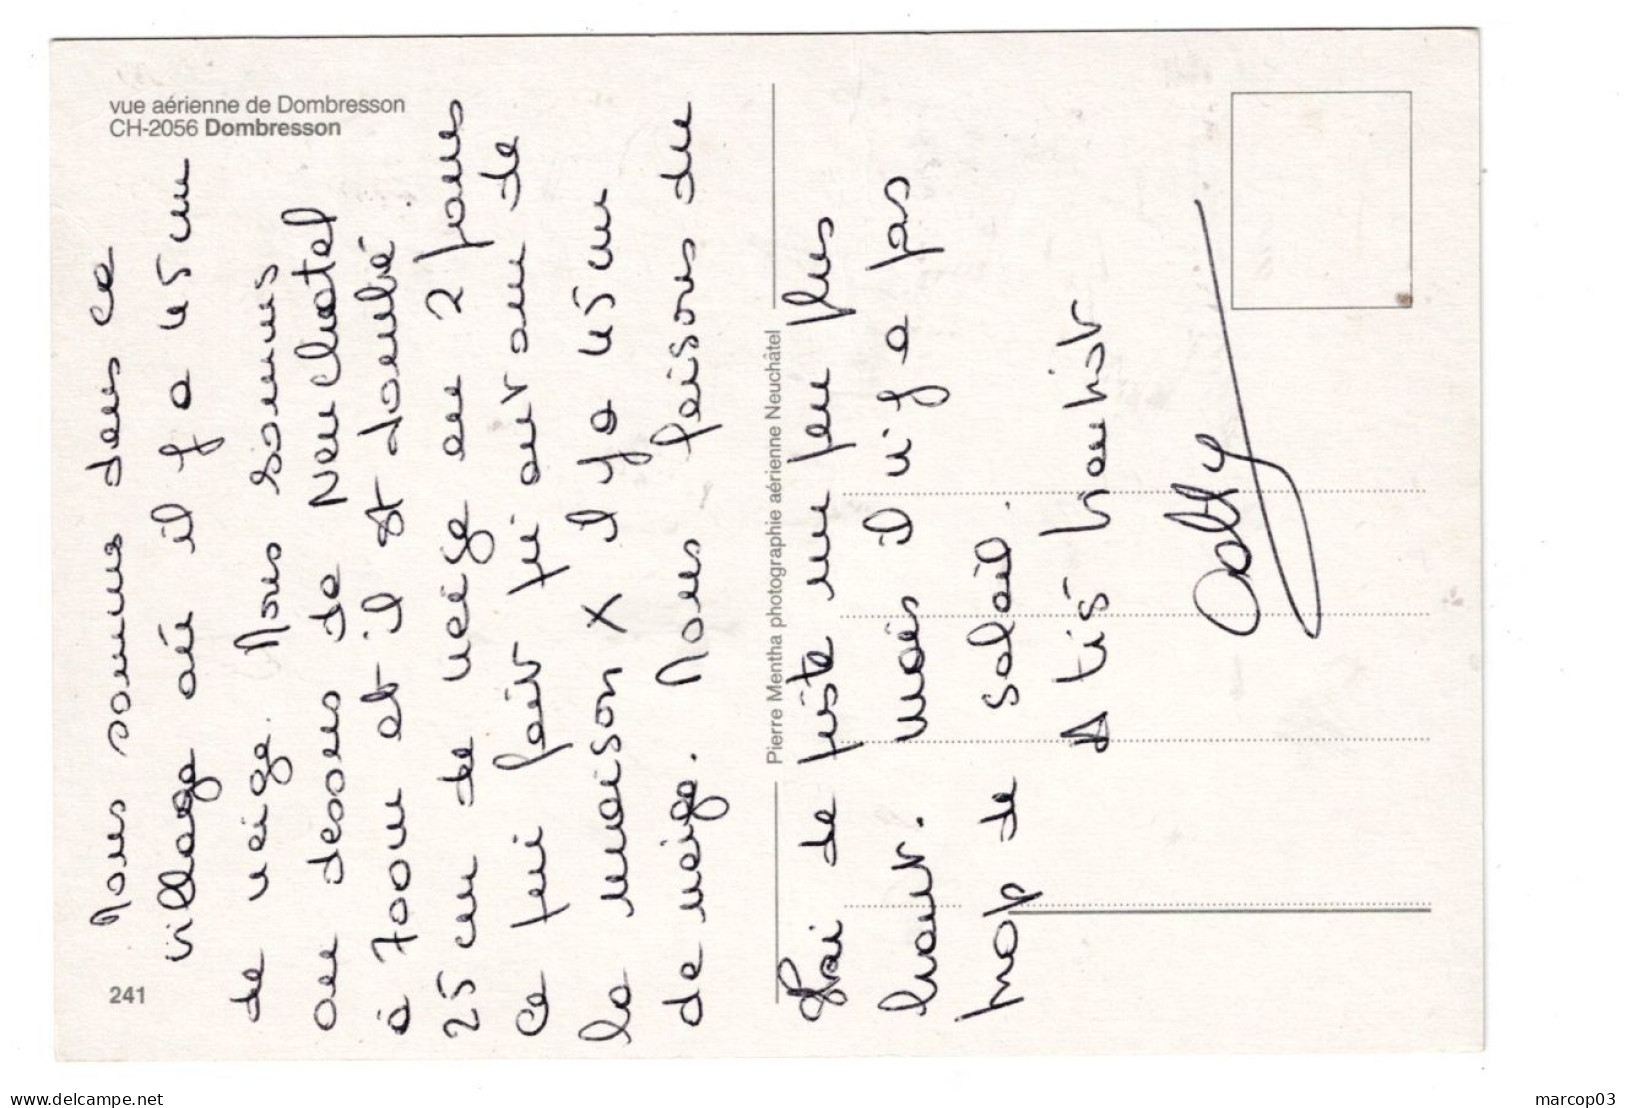 vue aérienne de Dombresson
CH-2056 Dombresson
241
Pierre Mentha photographie aérienne Neuchâtel
Nous sommes dans ce
village où il y a 45 cm
de neige. Nous sommes
au dessus de Neuchatel
à 700m et il est tombé
25 cm de neige en 2 jours
ce qui fait qu'autour de
la maison X il y a 45 cm
de neige. Nous faisons du
Ski de piste un peu plus
haut. Mais il n'y a pas
trop de soleil.
A très bientôt
marcop03